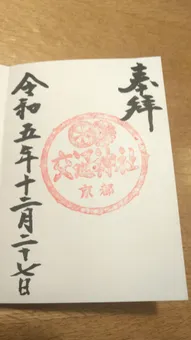 奉拝
交通神社
京都
令和五年十二月二十七日